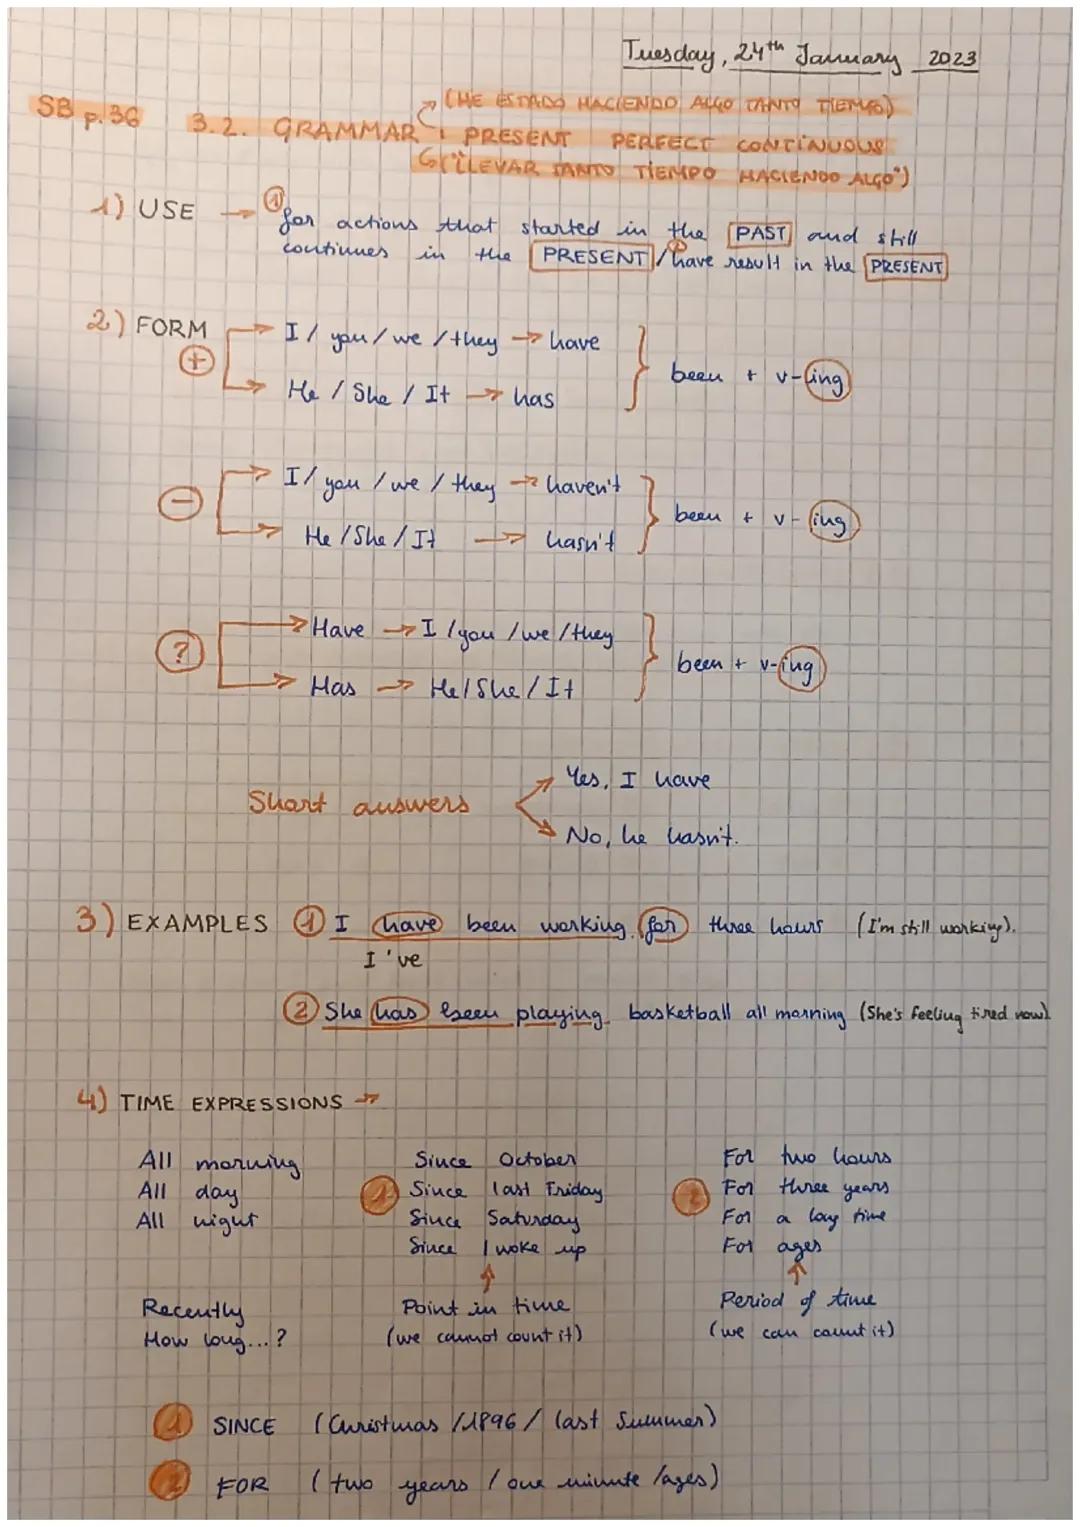 Tuesday, 24th January 2023
SB p.36 3.2. GRAMMAR: PRESENT PERFECT CONTINUOUS
(HE ESTADO HACIENDO ALGO TANTO TIEMPO)
("LLEVAR TANTO TIEMPO HACIENDO ALGO")
1) USE → ① for actions that started in the PAST and still
continues in the PRESENT / ② have result in the PRESENT
2) FORM
+ → I / you / we / they → have
→ He / She / It → has
been + v-ing
- → I / you / we / they → haven't
→ He / She / It → hasn't
been + v-ing
? → Have → I / you / we / they
→ Has → He / She / It
been + v-ing
Short answers
Yes, I have
No, he hasn't.
3) EXAMPLES ① I have been working for three hours (I'm still working).
I've
② She has been playing basketball all morning (She's feeling tired now).
4) TIME EXPRESSIONS →
All morning
All day
All night
Recently
How long...?
① Since October
Since last Friday
Since Saturday
Since I woke up
↑
Point in time
(we cannot count it)
② For two hours
For three years
For a long time
For ages
↑
Period of time
(we can count it)
① SINCE (Christmas / 1896 / last Summer)
② FOR (two years / one minute / ages)